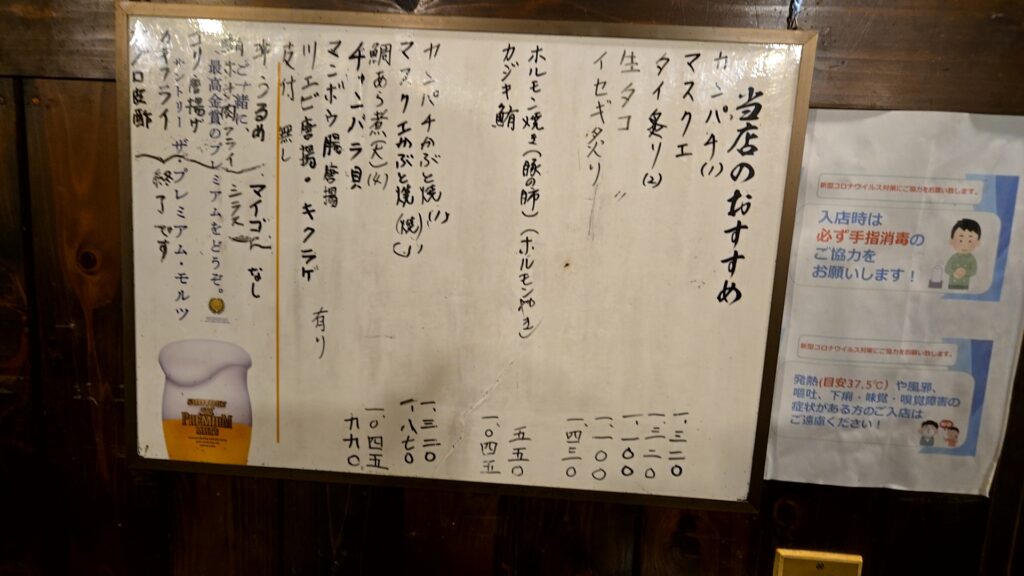 当店のおすすめ
カンパチ(1) 一、三二〇
マスクエ
タイ炙り(2) 一、三二〇
生タコ 一、一〇〇
イセギ炙り 〃 一、一〇〇
一、四三〇
ホルモン焼き(豚の肺)(ホルモンやき) 五五〇
カジキ鮪 一、〇四五
カンパチかぶと焼(1) 一、三二〇
マスクエかぶと焼(焼し) 一、八七〇
鯛あら煮(大)(小) 一、〇四五
チャンバラ貝 九九〇
マンボウ腸唐揚
川エビ唐揚・キクラゲ 有り
皮付 無し
マイゴン なし
シラス
終了です
ご一緒に、
最高金賞のプレミアムをどうぞ。
サントリー ザ・プレミアム・モルツ
PREMIUM
新型コロナウイルス対策にご協力をお願い致します。
入店時は
必ず手指消毒の
ご協力を
お願いします！
新型コロナウイルス対策にご協力をお願い致します。
発熱(目安37.5℃)や風邪、
嘔吐、下痢・味覚・嗅覚障害の
症状がある方のご入店は
ご遠慮ください！